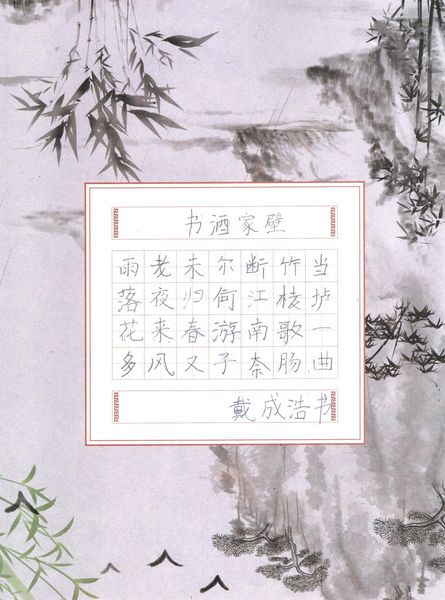 书酒家壁
当垆一曲
竹枝歌肠
断江南奈
尔何游子
未归春又
老夜来风
雨落花多
戴成浩书